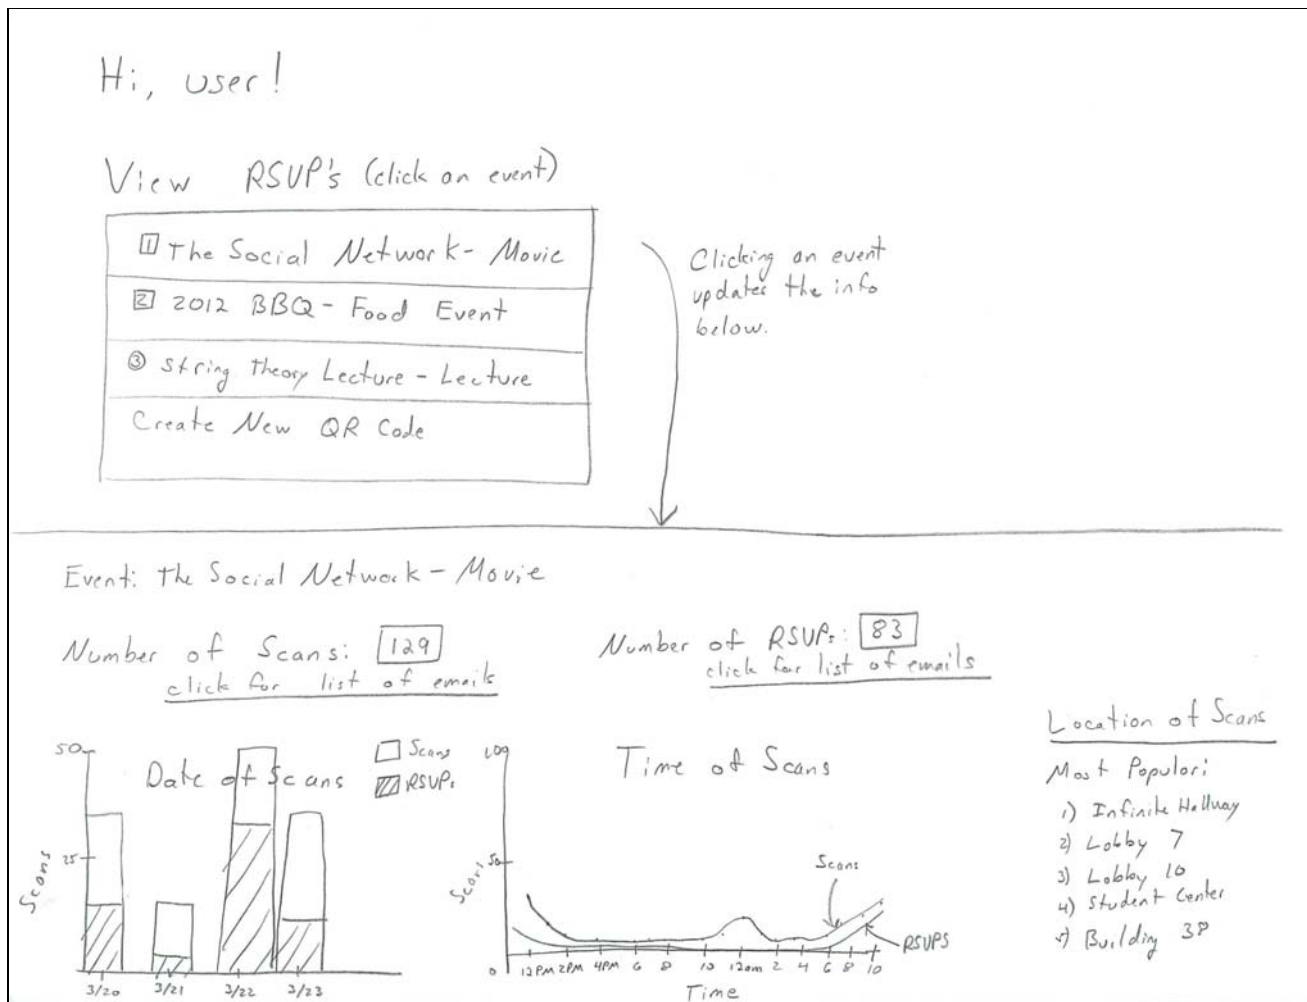 Hi, user!
View RSVP's (click on event)
1 The Social Network - Movie
2 2012 BBQ - Food Event
3 String Theory Lecture - Lecture
Create New QR Code
Clicking an event
updates the info
below.
Event: The Social Network - Movie
Number of Scans: 129
click for list of emails
Number of RSVPs: 83
click for list of emails
Date of Scans
Scans
RSVPs
50
25
Scans
3/20 3/21 3/22 3/23
Time of Scans
100
50
0
Scans
Scans
RSVPS
12PM 2PM 4PM 6 8 10 12am 2 4 6 8 10
Time
Location of Scans
Most Popular:
1) Infinite Hallway
2) Lobby 7
3) Lobby 10
4) Student Center
5) Building 38